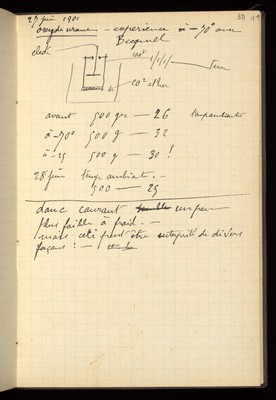 27 juin 1901
oxyde urane - expérience à -70° avec
Becquerel
élect
100V
Terre
CO² ether
avant 500 gr - 26 temp ambiante
à -70° 500 g - 32
à -25 500 g - 30 !
28 juin temp ambiante. -
500 - 25
donc courant semble un peu
plus faible à froid. -
mais ceci peut être interprété de divers
façons : -